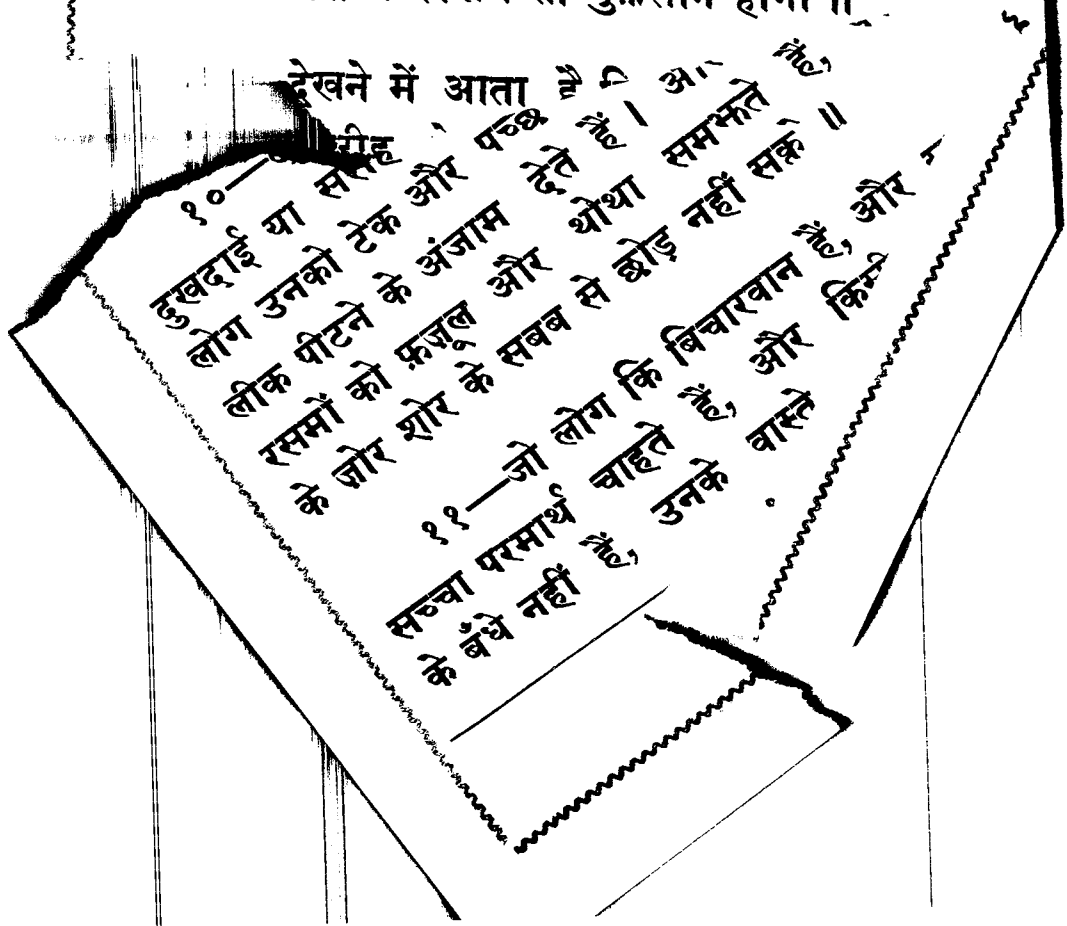 होगा ॥
देखने में आता है
१०—
दुखदाई या
लोग उनको टेक और पच्छ
लीक पीटने के अंजाम देते हैं ।
रसमों को फ़ज़ूल और थोथा समझते हैं,
के ज़ोर शोर के सबब से छोड़ नहीं सक्ते ॥
११—जो लोग कि बिचारवान हैं, और
सच्चा परमार्थ चाहते हैं, और
के बँधे नहीं हैं, उनके वास्ते